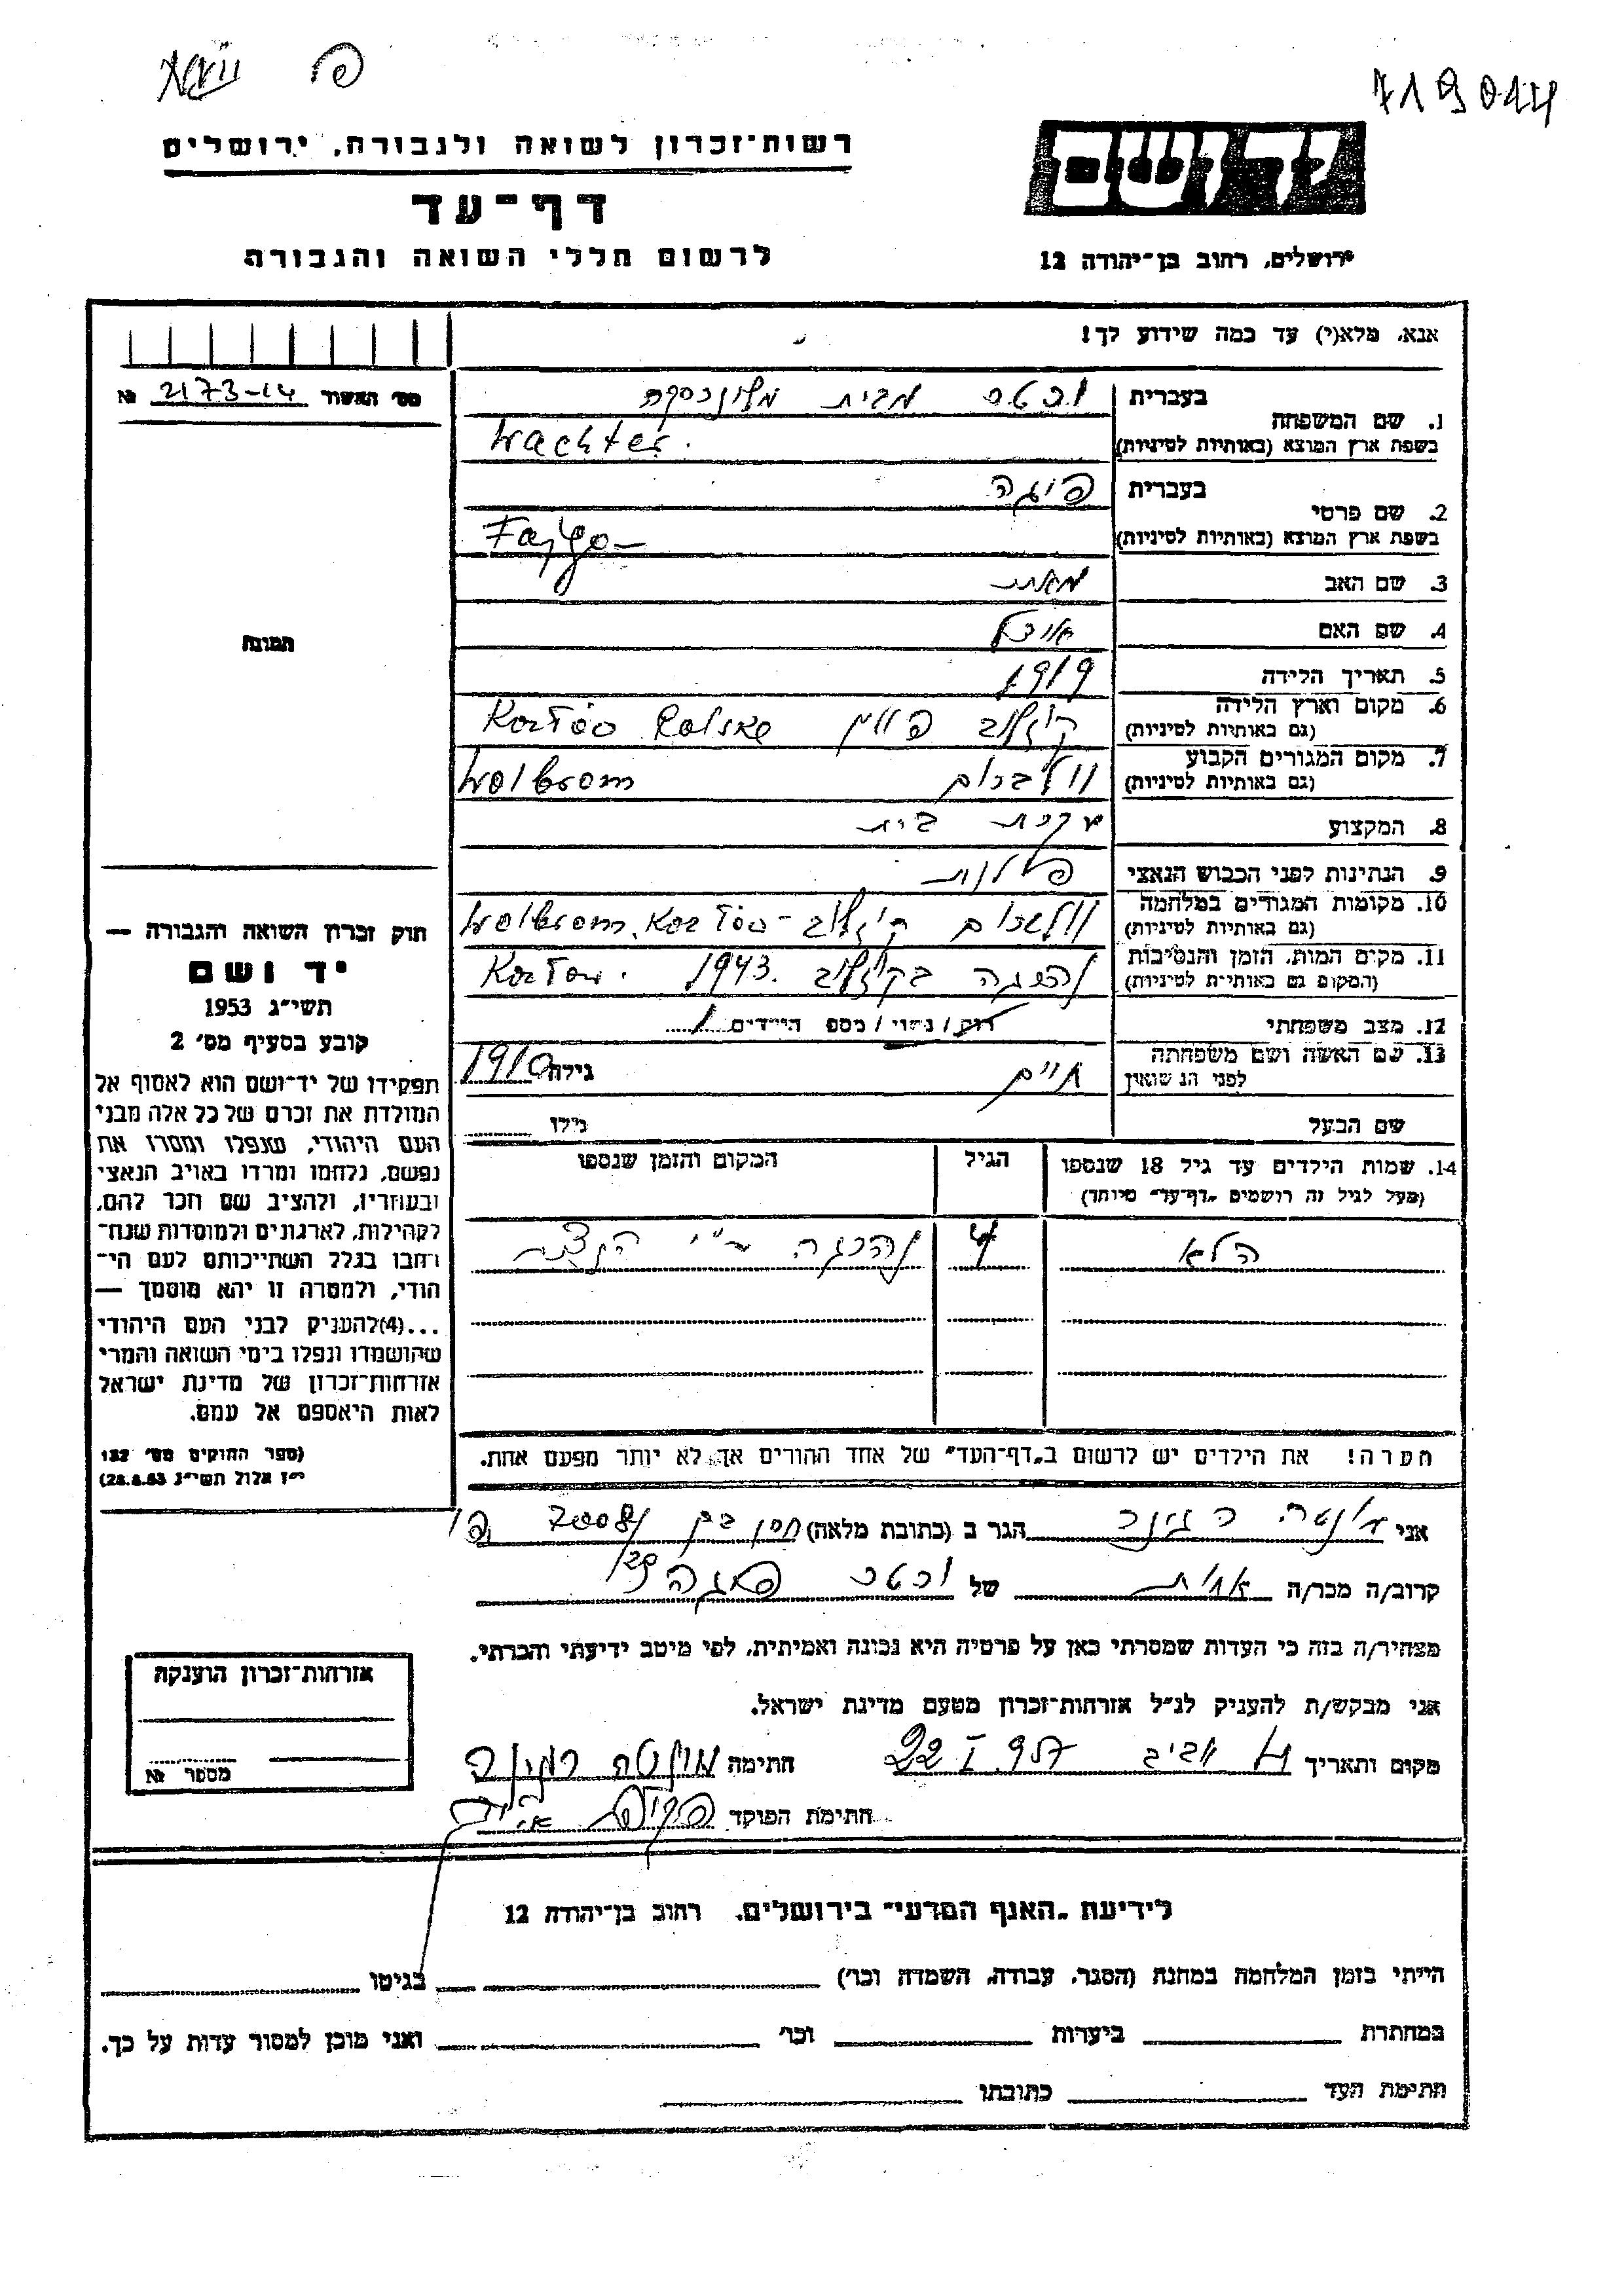 719044
פל
רשות־זכרון לשואה ולגבורה, ירושלים
דף־עד
לרשום חללי השואה והגבורה
ירושלים, רחוב בן־יהודה 12
אנא, מלא(י) עד כמה שידוע לך!
מס׳ האשור 2173-14 №
תמונה
1. שם המשפחה בעברית וכטר מבית
בשפת ארץ המוצא (באותיות לטיניות) Wachter.
2. שם פרטי בעברית פיגה
בשפת ארץ המוצא (באותיות לטיניות) Fajga
3. שם האב
4. שם האם
5. תאריך הלידה 1919
6. מקום וארץ הלידה
(גם באותיות לטיניות) קוזלוב פולין Kozłów Polska
7. מקום המגורים הקבוע
(גם באותיות לטיניות) וולברום Wolbrom
8. המקצוע עקרת בית
9. הנתינות לפני הכבוש הנאצי פולנית
10. מקומות המגורים במלחמה
(גם באותיות לטיניות) וולברום קוזלוב - Wolbrom, Kozłów
11. מקום המות, הזמן והנסיבות
(המקום גם באותיות לטיניות) נהרגה בקוזלוב 1943. Kozłow.
12. מצב משפחתי רוק / נשוי / מספר הילדים 1
13. שם האשה ושם משפחתה
לפני הנשואין חיים גילה 1910
שם הבעל גילו
14. שמות הילדים עד גיל 18 שנספו הגיל המקום והזמן שנספו
(מעל לגיל זה רושמים „דף־עד״ מיוחד)
הלא 4 נהרגה ע"י הנצים
הערה! את הילדים יש לרשום ב„דף־העד״ של אחד ההורים אך לא יותר מפעם אחת.
חוק זכרון השואה והגבורה —
יד ושם
תשי״ג 1953
קובע בסעיף מס׳ 2
תפקידו של יד־ושם הוא לאסוף אל
המולדת את זכרם של כל אלה מבני
העם היהודי, שנפלו ומסרו את
נפשם, נלחמו ומרדו באויב הנאצי
ובעוזריו, ולהציב שם וזכר להם,
לקהילות, לארגונים ולמוסדות שנח־
רחבו בגלל השתייכותם לעם הי־
הודי, ולמטרה זו יהא מוסמך —
...(4)להעניק לבני העם היהודי
שהושמדו ונפלו בימי השואה והמרי
אזרחות־זכרון של מדינת ישראל
לאות היאספם אל עמם.
(ספר החוקים מס׳ 132
י״ז אלול תשי״ג 28.8.53)
אני הגר ב (כתובת מלאה)
קרוב/ה מכר/ה אחות של וכטר פיגה
מצהיר/ה בזה כי העדות שמסרתי כאן על פרטיה היא נכונה ואמיתית, לפי מיטב ידיעתי והכרתי.
אני מבקש/ת להעניק לנ״ל אזרחות־זכרון מטעם מדינת ישראל.
מקום ותאריך ת אביב 957 I 22 חתימה
חתימת הפוקד
אזרחות־זכרון הוענקה
מספר №
לידיעת „האגף המדעי״ בירושלים, רחוב בן־יהודה 12
הייתי בזמן המלחמה במחנה (הסגר, עבודה, השמדה וכו׳) בגיטו
במחתרת ביערות וכו׳ ואני מוכן למסור עדות על כך.
חתימת העד כתובתו